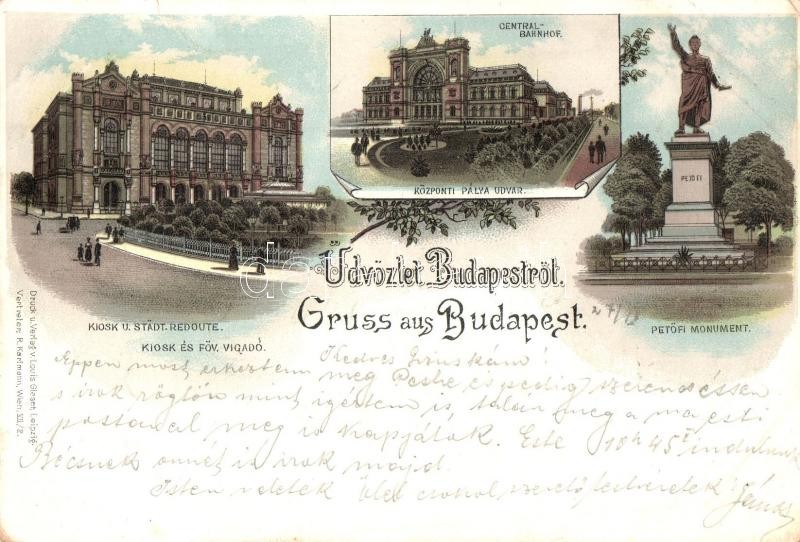 CENTRAL-
BAHNHOF.
KÖZPONTI PÁLYA UDVAR.
PETŐFI
Üdvözlet Budapestről.
Gruss aus Budapest.
KIOSK U. STÄDT. REDOUTE.
KIOSK ÉS FŐV. VIGADÓ.
PETŐFI MONUMENT.
Druck u. Verlag v. Louis Glaser, Leipzig.
Vertreter: R. Karlmann, Wien, VII/2.
Kedves
Éppen most érkeztem meg Pestre és pedig szerencsésen
s írok rögtön mint ígértem is, talán még a mai esti
postával meg is kapjátok. Este 10h 45 indulunk
Bécsnek onnét is írok majd.
Isten veletek Ölel csókol szerető testvéretek
János